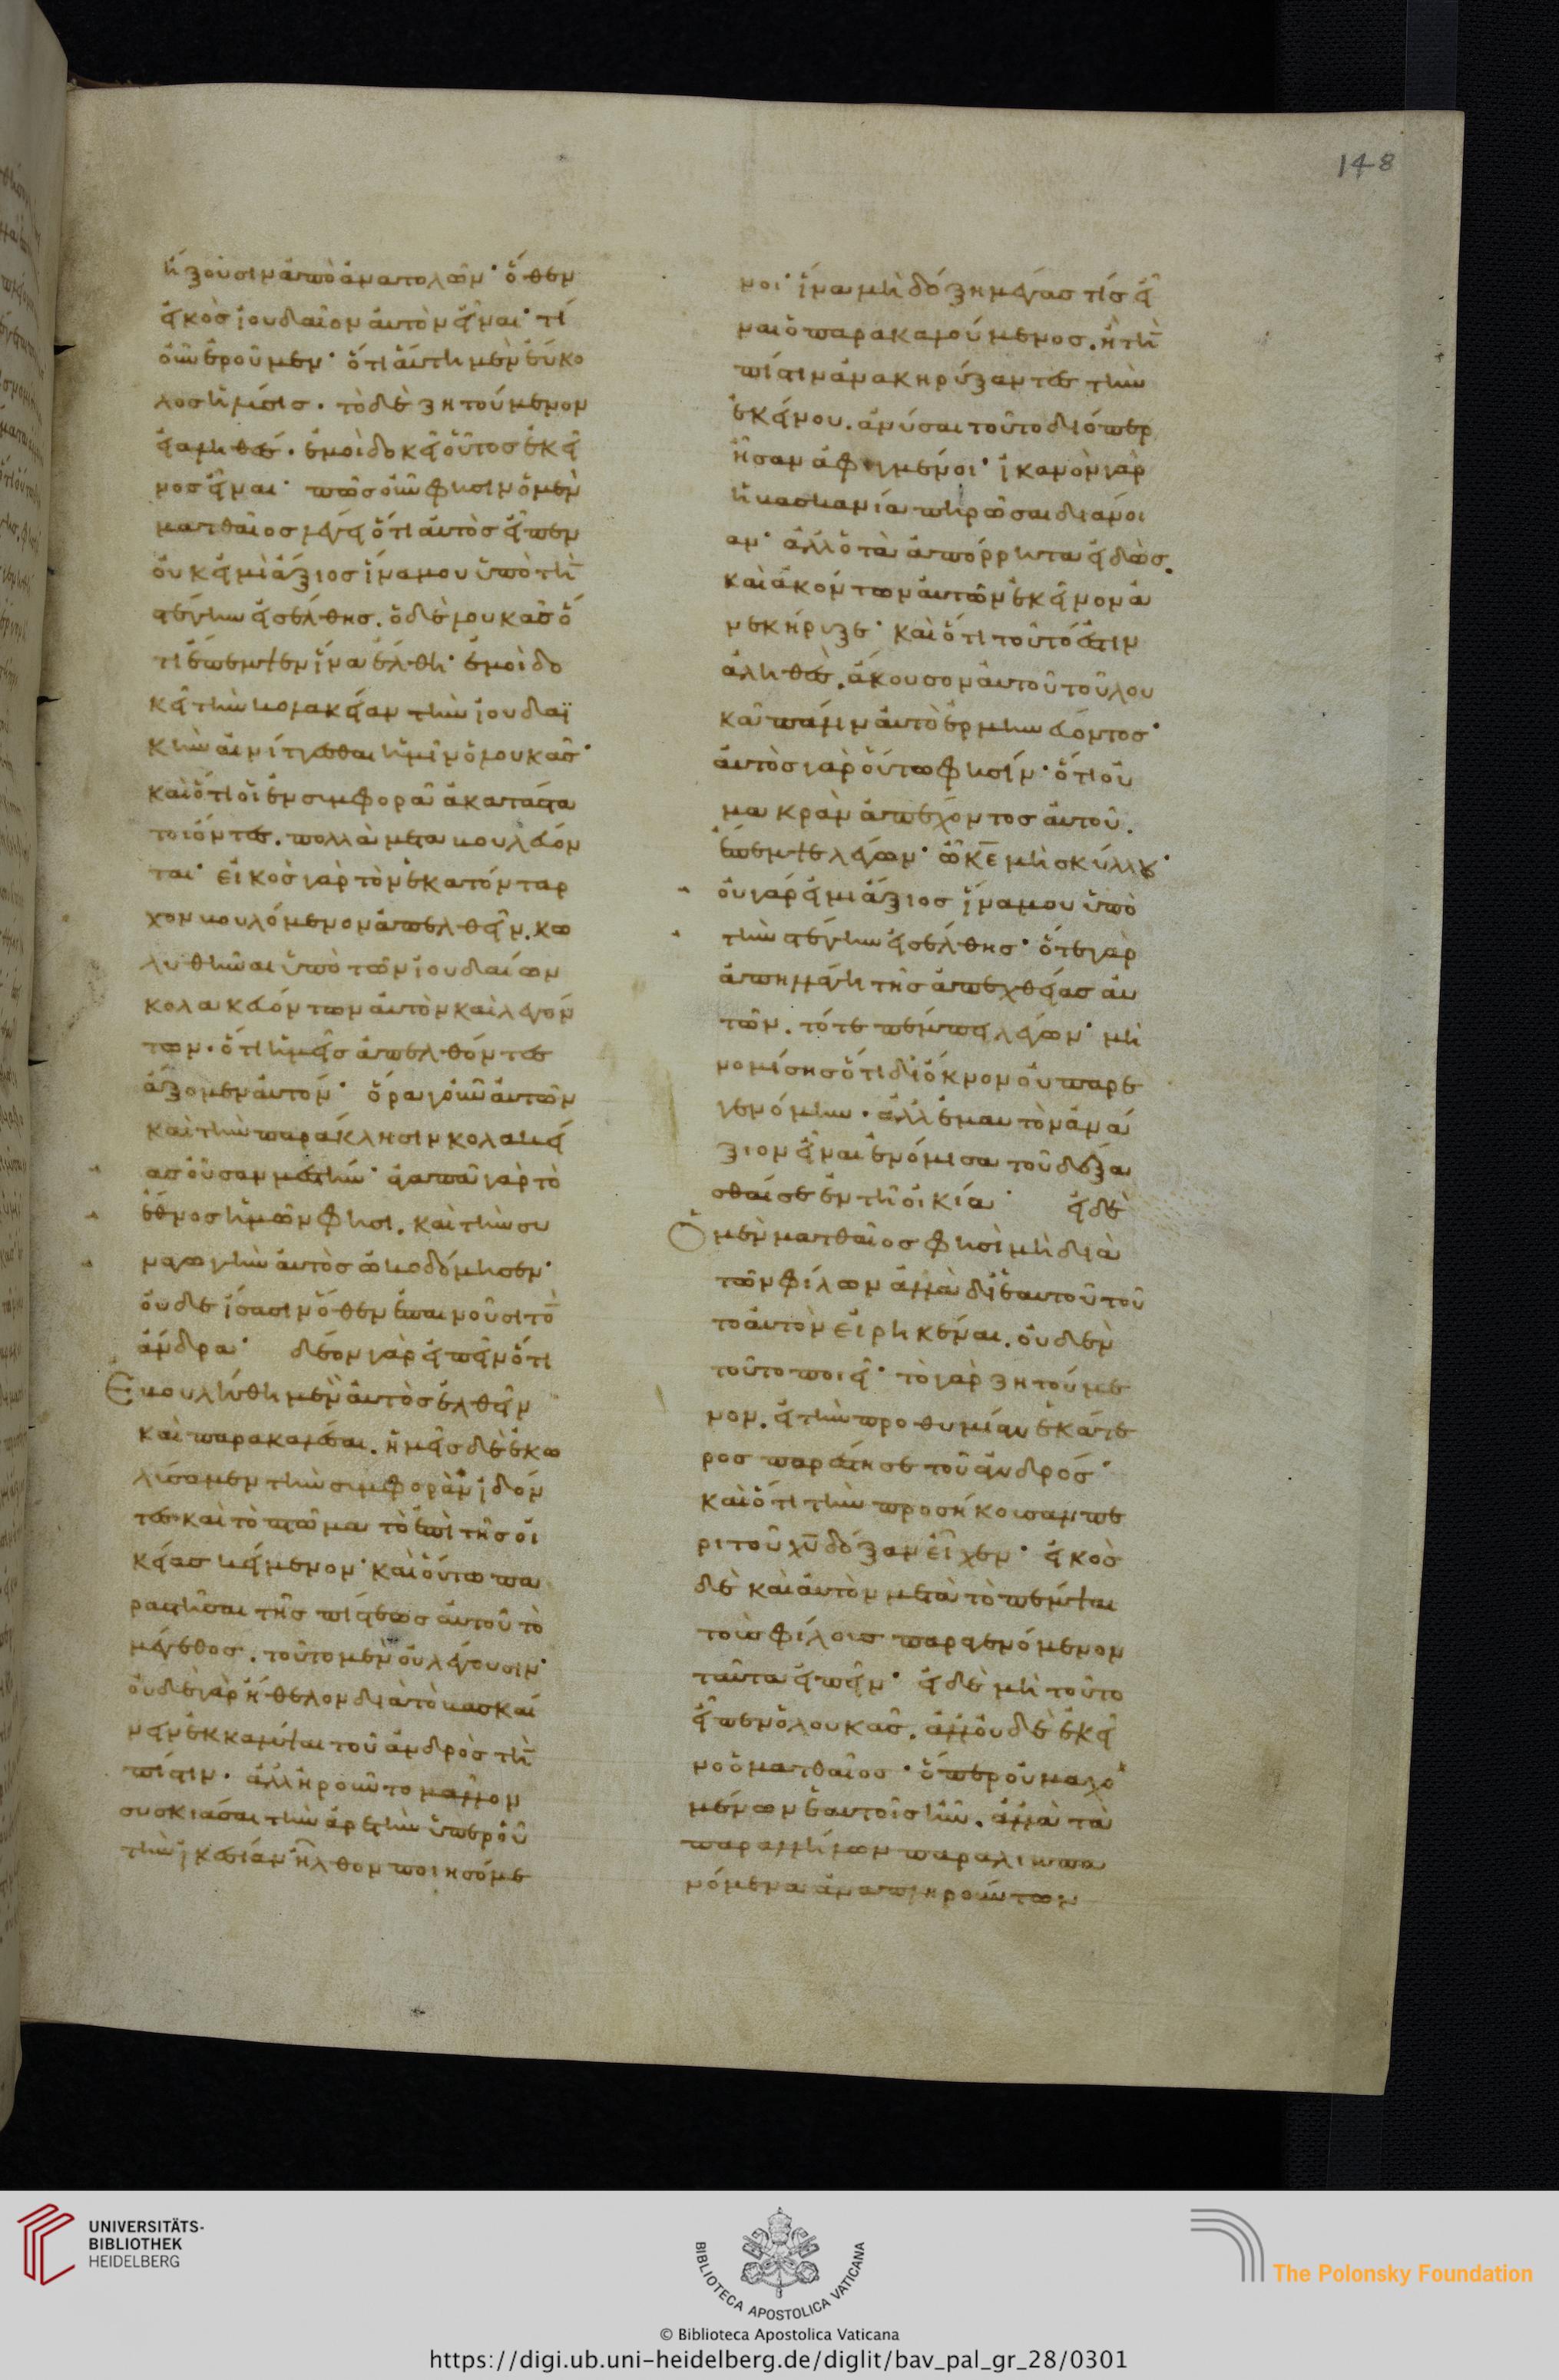 ἥξουσιν ἀπὸ ἀνατολῶν· ὅθεν
εἰκὸς ἰουδαῖον αὐτὸν εἶναι· τί
οὖν ἐροῦμεν· ὅτι αὕτη μὲν εὔκο
λος ἡ λύσις. τὸ δὲ ζητούμενον
εἰ ἀληθές. ἐμοὶ δοκεῖ οὗτος ἐκεῖ
νος εἶναι· πῶς οὖν φησιν ὁ μὲν
ματθαῖος λέγει ὅτι αὐτὸς εἶπεν
οὐκ εἰμὶ ἄξιος ἵνα μου ὑπὸ τὴ̅
στέγην εἰσέλθης. ὁ δὲ λουκᾶς ὅ
τι ἔπεμψεν ἵνα ἔλθη· ἐμοὶ δο
κεῖ τὴν κολακείαν τὴν ἰουδαϊ
κὴν αἰνίττεσθαι ἡμῖν ὁ λουκᾶς·
καὶ ὅτι οἱ ἐν συμφορᾶ ἀκατάστα
τοι ὄντες. πολλὰ μεταβουλεύον
ται· εἰκὸς γὰρ τὸν ἑκατόνταρ
χον βουλόμενον ἀπελθεῖν. κω
λυθῆναι ὑπὸ τῶν ἰουδαίων
κολακευόντων αὐτὸν καὶ λεγόν
των. ὅτι ἡμεῖς ἀπελθόντες
ἄξομεν αὐτόν· ὅρα γοῦν αὐτῶν
καὶ τὴν παράκλησιν κολακεί
ας οὖσαν μεστήν· ἀγαπᾶ γὰρ τὸ
ἔθνος ἡμῶν φησι. καὶ τὴν συ
ναγωγὴν αὐτὸς ὠκοδόμησεν·
οὐδὲ ἴσασιν ὅθεν ἐπαινοῦσι τὸ̅
ἄνδρα· δέον γὰρ εἰπεῖν ὅτι
Ἐβουλήθη μὲν αὐτὸς ἐλθεῖν
καὶ παρακαλέσαι. ἡμεῖς δὲ ἐκω
λύσαμεν τὴν συμφορὰν ἰδόν
τες καὶ τὸ πτῶμα τὸ ἐπὶ τῆς οἰ
κίας κείμενον· καὶ οὕτω πα
ραστῆσαι τῆς πίστεως αὐτοῦ τὸ
μέγεθος. τοῦτο μὲν οὐ λέγουσιν·
οὐδὲ γὰρ ἤθελον διὰ τὸ βασκαί
νειν ἐκκαλύψαι τοῦ ἀνδρὸς τὴ̅
πίστιν. ἀλλ ἠροῦντο μᾶλλον
συσκιάσαι τὴν ἀρετὴν ὑπὲρ οὗ
τὴν ἱκεσίαν ἦλθον ποιησόμε
νοι· ἵνα μὴ δόξη μέγας τίς εἶ
ναι ὁ παρακαλούμενος. ἢ τὴ̅
πίστιν ἀνακηρύξαντες τὴν
ἐκείνου. ἀνύσαι τοῦτο διόπερ
ἦσαν ἀφιγμένοι· ἱκανὸν γὰρ
ἡ βασκανία πηρῶσαι διάνοι
αν· ἀλλ ὁ τὰ ἀπόρρητα εἰδὼς.
καὶ ἀκόντων αὐτῶν ἐκεῖνον ἀ
νεκήρυξε· καὶ ὅτι τοῦτό ἐστιν
ἀληθὲς. ἄκουσον αὐτοῦ τοῦ λου
κᾶ πάλιν αὐτὸ ἑρμηνεύοντος·
αὐτὸς γὰρ οὕτω φησίν· ὅτι οὐ
μακρὰν ἀπέχοντος αὐτοῦ.
ἔπεμψε λέγων· ὦ κ̅ε̅ μὴ σκύλλου·
οὐ γάρ εἰμι ἄξιος ἵνα μου ὑπὸ
τὴν στέγην εἰσέλθης· ὅτε γὰρ
ἀπηλλάγη τῆς ἀπεχθείας αὐ
τῶν. τότε πέμπει λέγων· μὴ
νομίσης ὅτι δι ὄκνον οὐ παρε
γενόμην. ἀλλ ἐμαυτὸν ἀνά
ξιον εἶναι ἐνόμισα τοῦ δέξα
σθαί σε ἐν τῆ οἰκία· εἰ δὲ
Ὁ μὲν ματθαῖος φησὶ μὴ διὰ
τῶν φίλων ἀλλὰ δι ἑαυτοῦ τοῦ
το αὐτὸν εἰρηκέναι. οὐδὲν
τοῦτο ποιεῖ· τὸ γὰρ ζητούμε
νον. εἰ τὴν προθυμίαν ἑκάτε
ρος παρέστησε τοῦ ἀνδρός·
καὶ ὅτι τὴν προσήκουσαν πε
ρι τοῦ χ̅υ̅ δόξαν εἶχεν· εἰκὸς
δὲ καὶ αὐτὸν μετὰ τὸ πέμψαι
τοὺς φίλους παραγενόμενον
ταῦτα εἰπεῖν· εἰ δὲ μὴ τοῦτο
εἶπεν ὁ λουκᾶς. ἀλλ οὐδὲ ἐκεῖ
νο ὁ ματθαῖος· ὅπερ οὐ μαχο
μένων ἑαυτοῖς ἦν. ἀλλὰ τὰ
παρ ἀλλήλων παραλιμπα
νόμενα ἀναπληρούντων
148
UNIVERSITÄTS-
BIBLIOTHEK
HEIDELBERG
BIBLIOTECA APOSTOLICA VATICANA
The Polonsky Foundation
© Biblioteca Apostolica Vaticana
https://digi.ub.uni-heidelberg.de/diglit/bav_pal_gr_28/0301